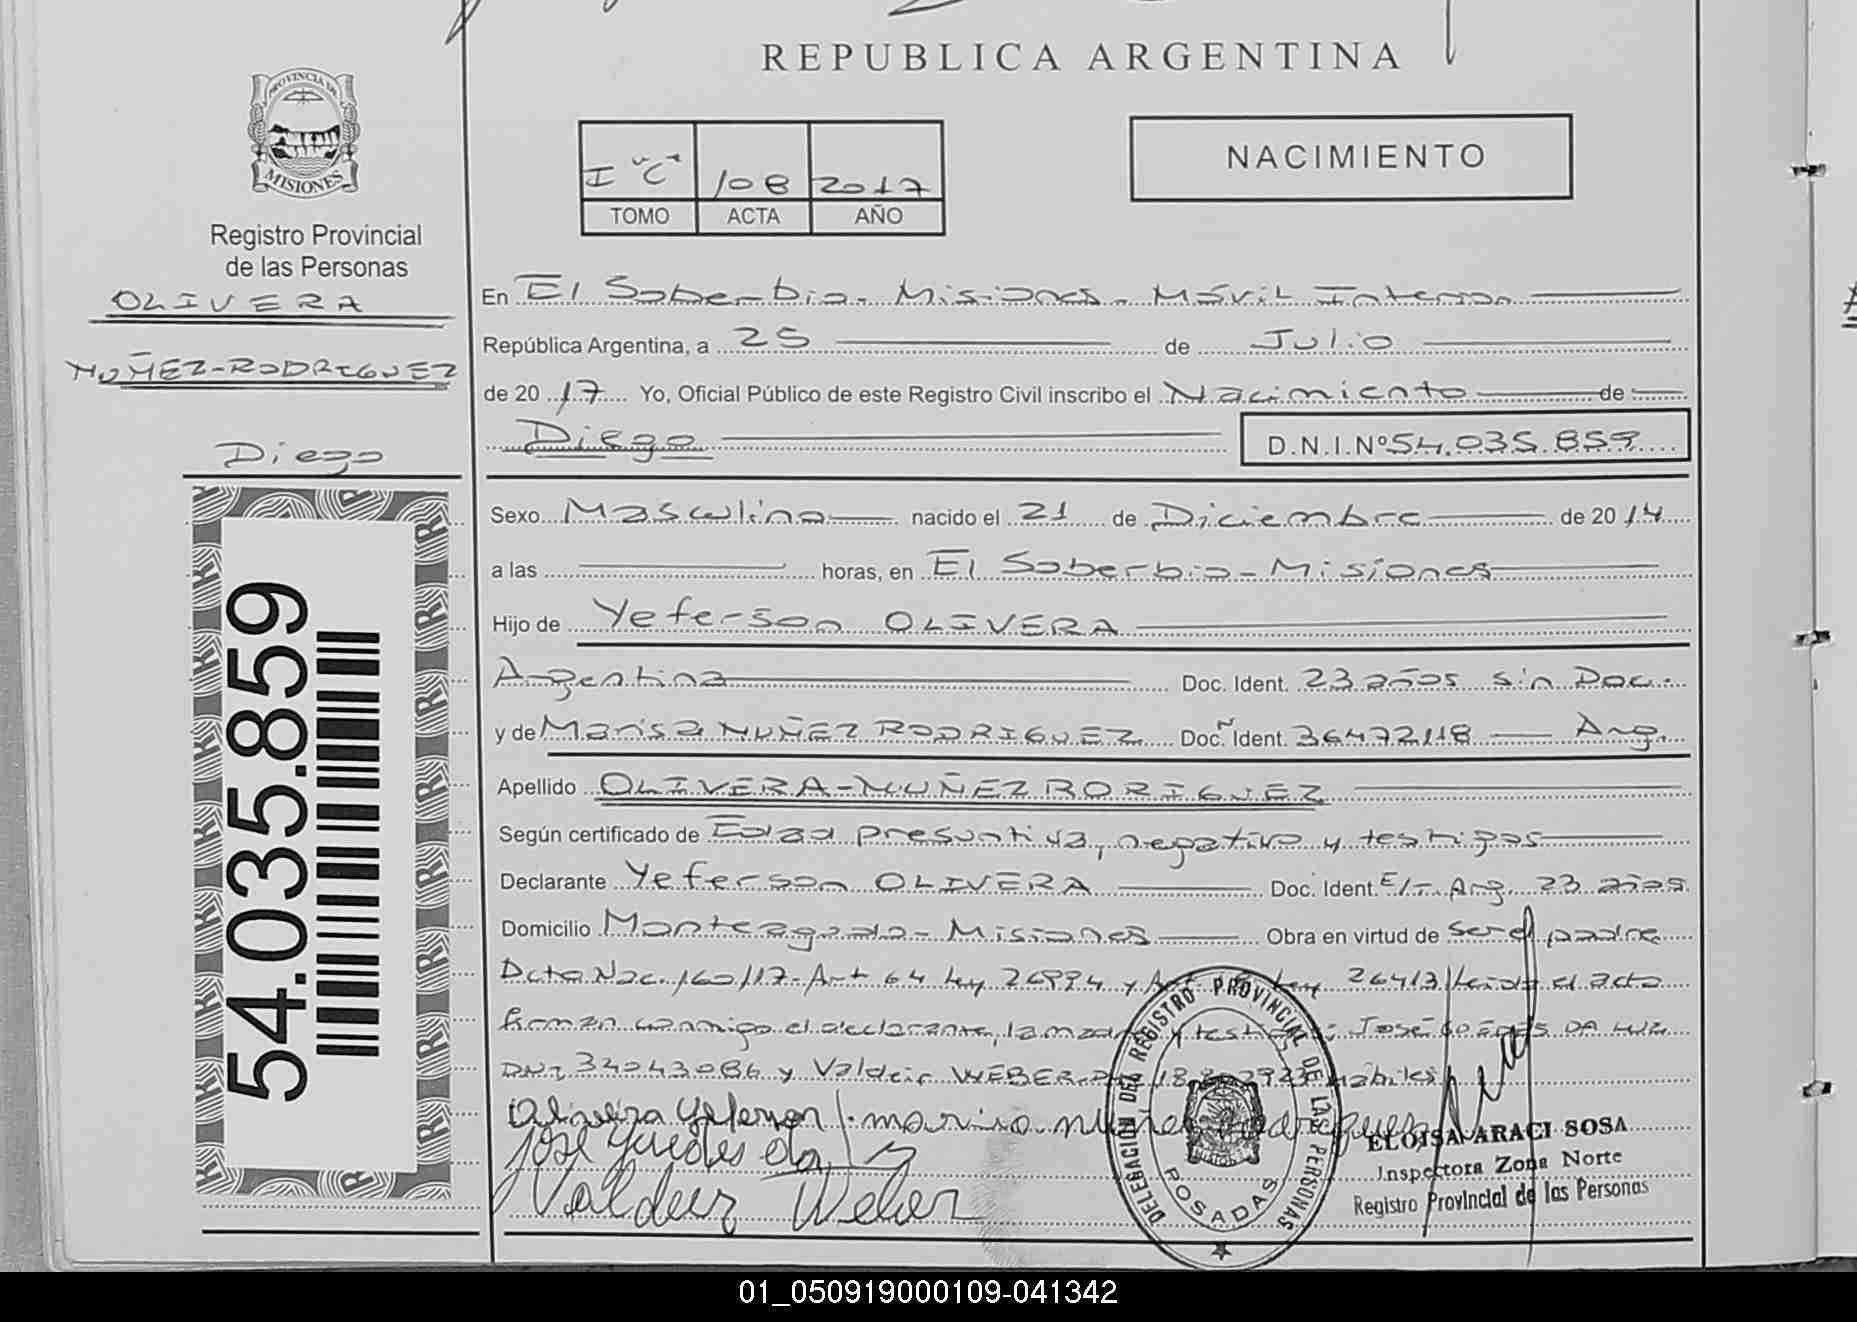 REPUBLICA ARGENTINA
PROVINCIA DE
MISIONES
Registro Provincial
de las Personas
OLIVERA
NUÑEZ-RODRIGUEZ
Diego
54.035.859
I "C" 108 2017
TOMO ACTA AÑO
NACIMIENTO
En El Soberbio - Misiones - Móvil Interior
República Argentina, a 25 de Julio
de 2017 Yo, Oficial Público de este Registro Civil inscribo el Nacimiento de
Diego D.N.I.Nº 54.035.859
Sexo Masculino nacido el 21 de Diciembre de 2014
a las horas, en El Soberbio - Misiones
Hijo de Yeferson OLIVERA
Argentina Doc. Ident. 23 años sin Doc.
y de Marisa NUÑEZ RODRIGUEZ Doc. Ident. 36472118 Arg.
Apellido OLIVERA-NUÑEZ RORIGUEZ
Según certificado de Edad presuntiva, negativo y testigos
Declarante Yeferson OLIVERA Doc. Ident. E/T Arg. 23 años
Domicilio Monteagudo - Misiones Obra en virtud de ser el padre
Dcto Nac. 160/17 - Art 64 Ley 26994 y Ley 26413 leida el acta
firman conmigo el declarante, la madre y testigos: José GUEDES DA LUZ
DNI 34043086 y Valdeir WEBER 18.802923 habiles
Olivera Yeferson marisa nuñes rodrigues
José Guedes da Luz
Valdeir Weber
DELEGACIÓN DEL REGISTRO PROVINCIAL DE LAS PERSONAS
POSADAS
ELOISA ARACI SOSA
Inspectora Zona Norte
Registro Provincial de las Personas
01_050919000109-041342